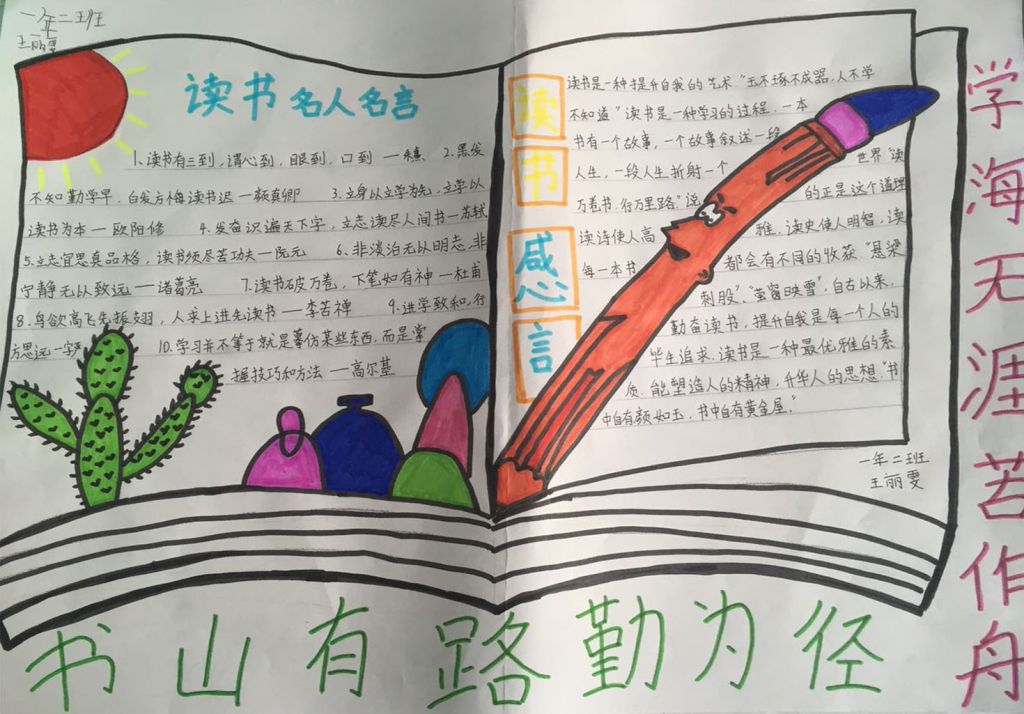 一年二班
王丽雯
读书名人名言
1、读书有三到，谓心到，眼到，口到 — 朱熹、 2.黑发
不知勤学早，白发方悔读书迟 — 颜真卿 3.立身以立学为先，立学以
读书为本 — 欧阳修 4.发奋识遍天下字，立志读尽人间书 — 苏轼
5.立志宜思真品格，读书须尽苦功夫 — 阮元 6.非淡泊无以明志，非
宁静无以致远 — 诸葛亮 7.读书破万卷，下笔如有神 — 杜甫
8.鸟欲高飞先振翅，人求上进先读书 — 李苦禅 9.进学致和，行
方思远 —
10.学习并不等于就是摹仿某些东西，而是掌
握技巧和方法 — 高尔基
读书感言
读书是一种提升自我的艺术“玉不琢不成器，人不学
不知道”读书是一种学习的过程．一本
书有一个故事，一个故事叙述一段
人生，一段人生折射一个 世界“读
万卷书，行万里路”说 的正是这个道理
读诗使人高 雅，读史使人明智，读
每一本书 都会有不同的收获．“悬梁
刺股”、“萤窗映雪”，自古以来，
勤奋读书，提升自我是每一个人的
毕生追求．读书是一种最优雅的素
质，能塑造人的精神，升华人的思想“书
中自有颜如玉，书中自有黄金屋。”
一年二班
王丽雯
书山有路勤为径
学海无涯苦作舟